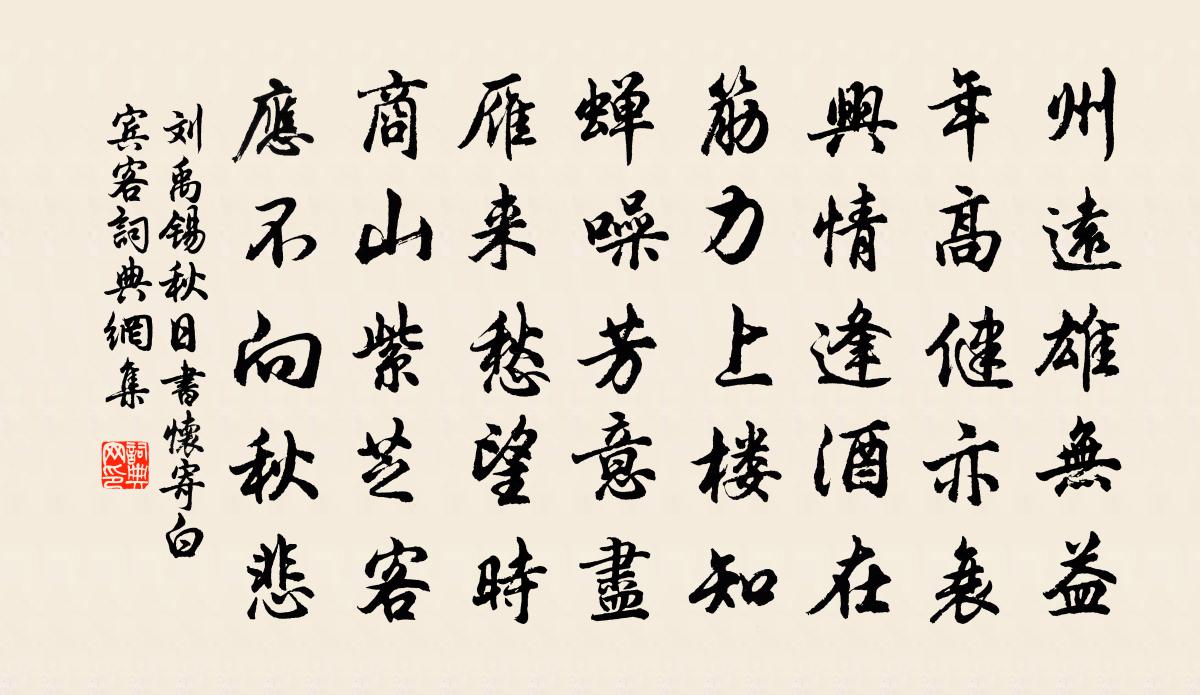 州遠雄無益
年高健亦衰
興情逢酒在
筋力上楼知
蝉噪芳意盡
雁来愁望時
商山紫芝客
應不向秋悲
刘禹锡秋日書懷寄白
宾客詞典網集
詞典
网印